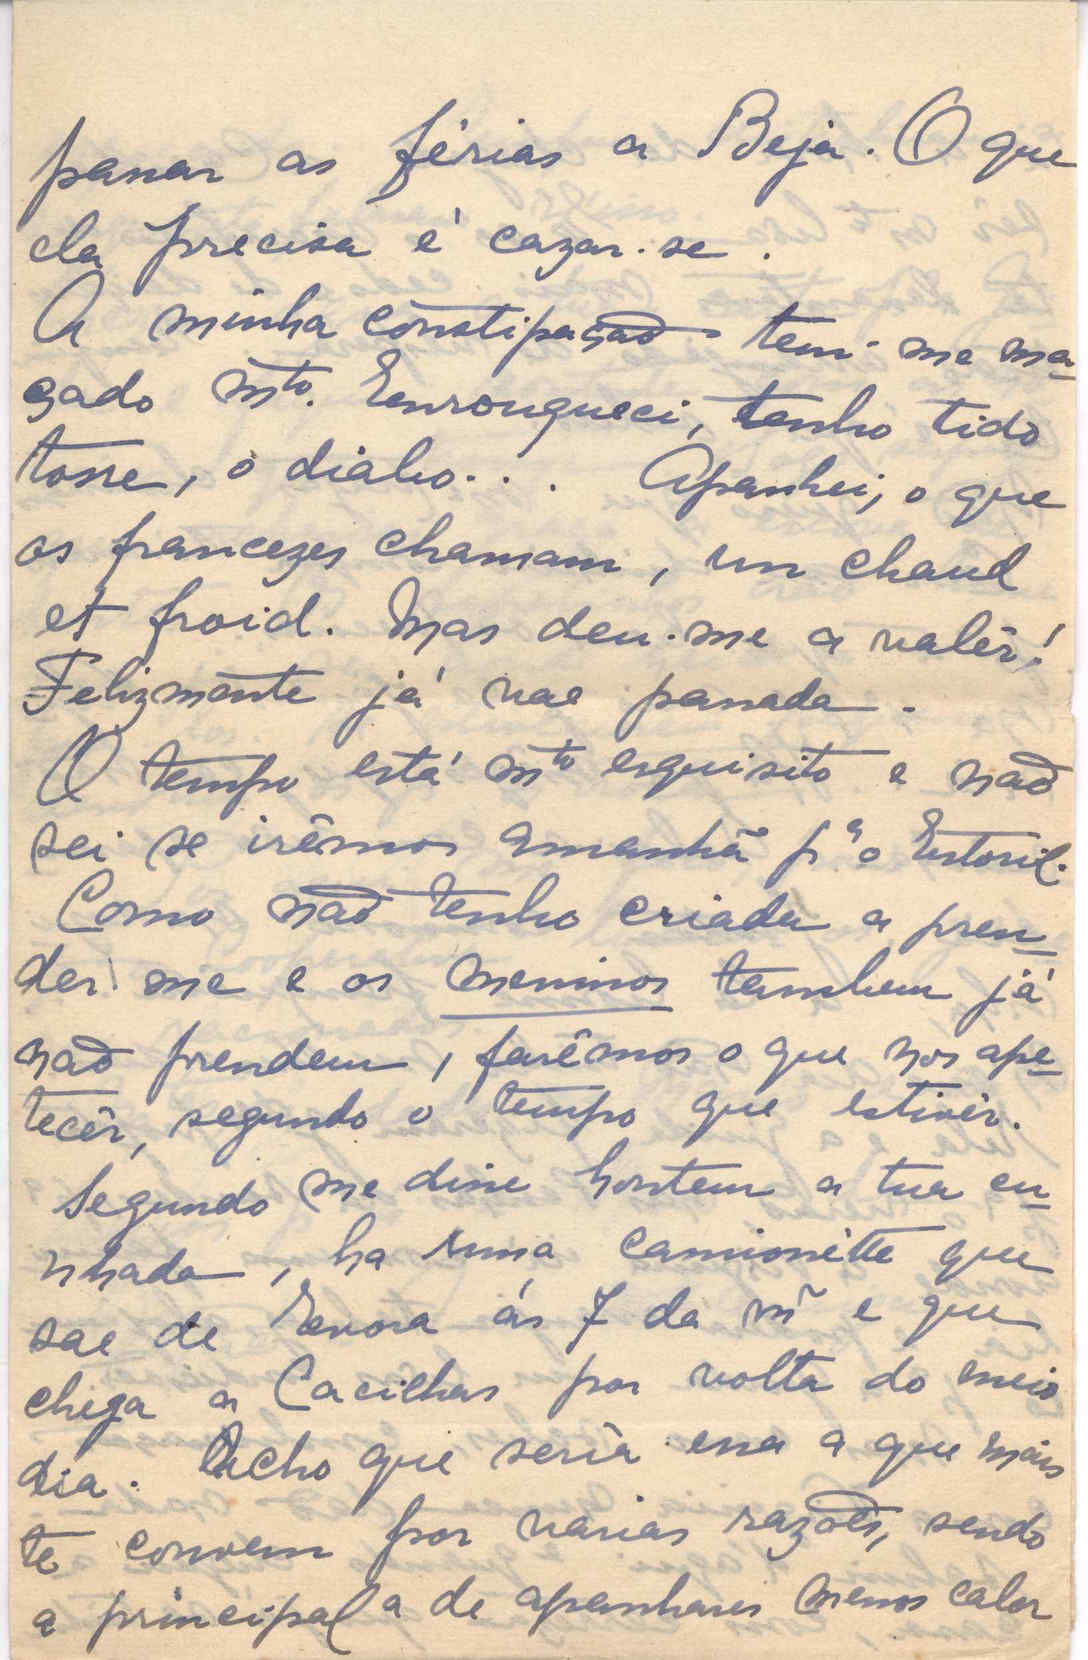 passar as férias a Beja. O que
ela precisa é cazar-se.
A minha constipação tem-me ma-
çado mto. Enrouqueci, tenho tido
tosse, o diabo... Apanhei, o que
os francezes chamam, un chaud
et froid. Mas deu-me a valêr!
Felizmente já vae passada.
O tempo está mto esquisito e não
sei se irêmos amanhã pª o Estoril.
Como não tenho criada a pren-
der-me e os meninos tambem já
não prendem, farêmos o que nos ape-
tecêr, segundo o tempo que estivér.
Segundo me disse hontem a tua cu-
nhada, ha uma camionéte que
sae de Evora ás 7 da mã e que
chega a Cacilhas por volta do meio
dia. Acho que seria essa a que mais
te convem por varias razões, sendo
a principal a de apanhares menos calor